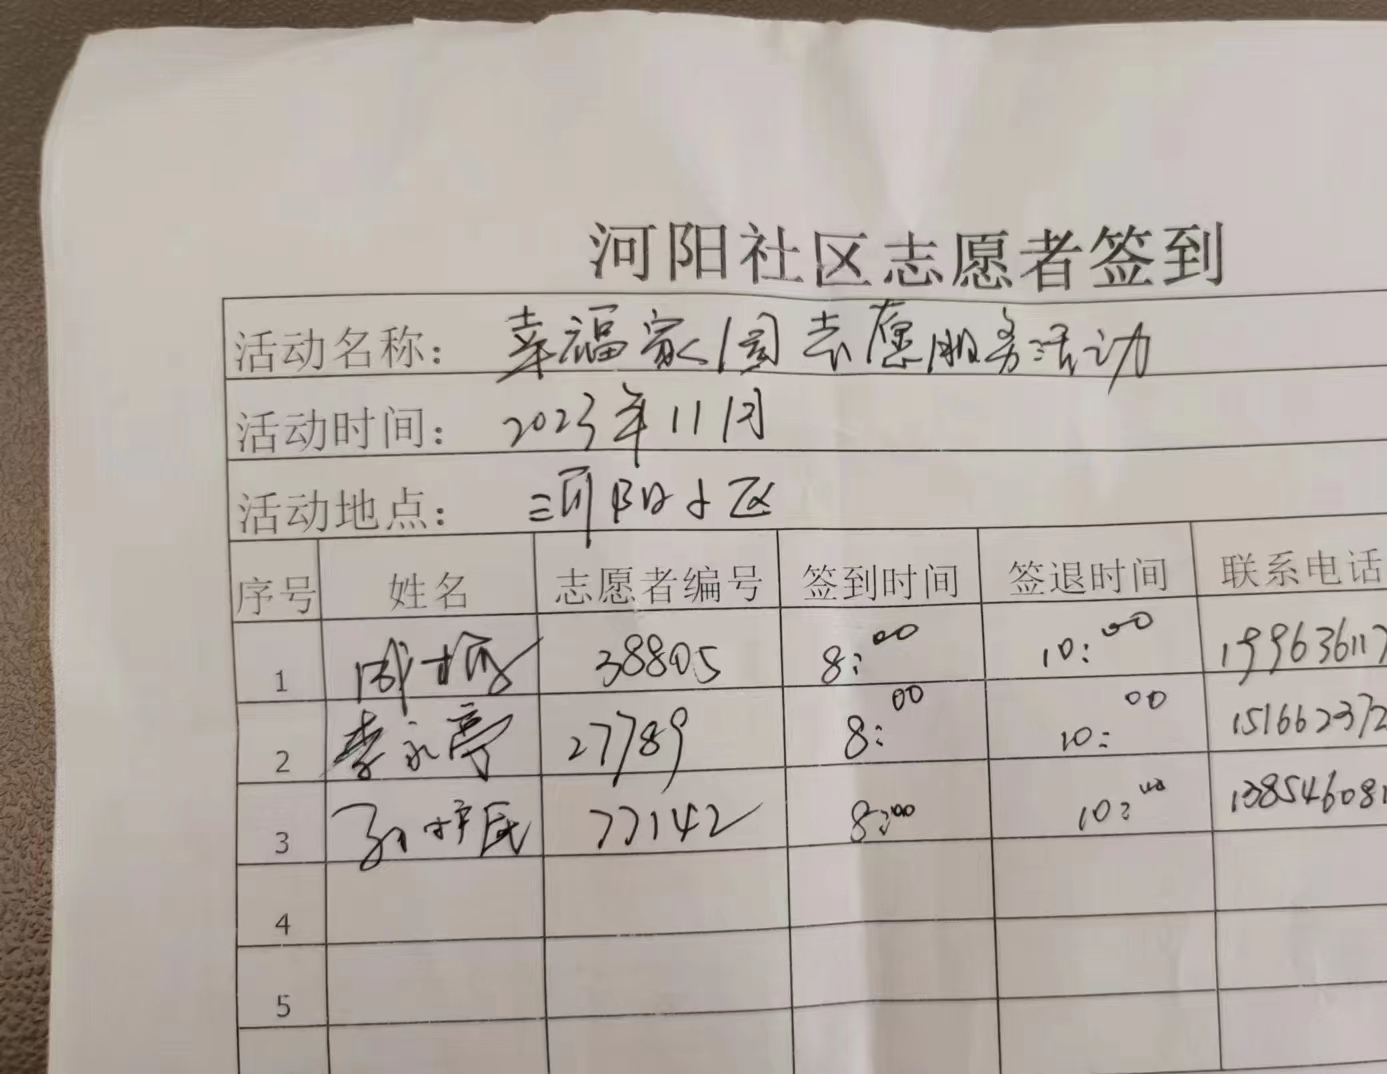 河阳社区志愿者签到
活动名称： 幸福家园志愿服务活动
活动时间： 2023年11月
活动地点： 河阳小区
序号 姓名 志愿者编号 签到时间 签退时间 联系电话
1 38805 8:00 10:00 199636117
2 李永亭 27789 8:00 10:00 151662372
3 77142 8:00 10:00 138546081
4
5